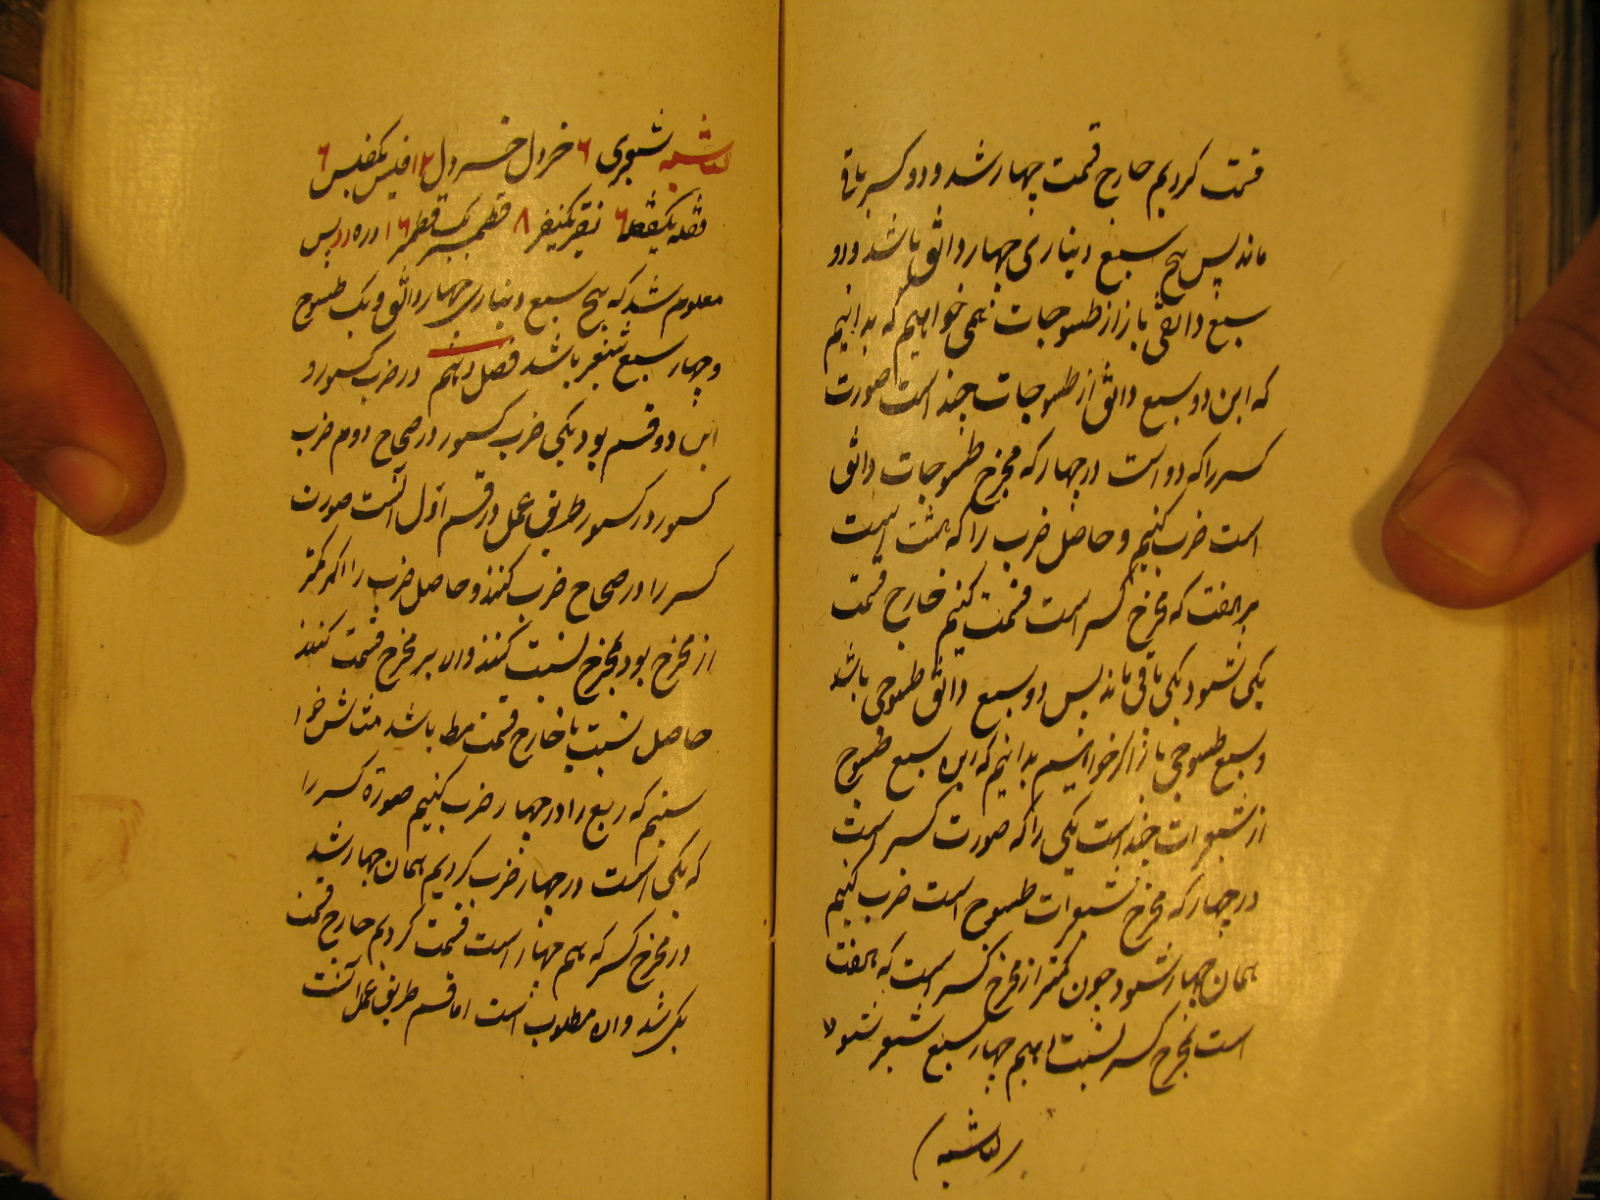 قسمت کردیم خارج قسمت چهار شد و دو کسر باقی
ماند پس پنج سبع دیناری چهار دانق باشد و دو
سبع دانقی باز از طسوجات نمی خواهیم که بدانیم
که این دو سبع دانق از طسوجات چند است صورت
کسر را که دو است در چهار که مخرج طسوجات دانق
است ضرب کنیم و حاصل ضرب را که هشت است
بر هفت که مخرج کسر است قسمت کنیم خارج قسمت
یکی شود یکی باقی ماند پس دو سبع دانق طسوجی باشد
و سبع طسوجی باز اگر خواهیم بدانیم که این سبع طسوج
از شعیرات چند است یکی را که صورت کسر است
در چهار که مخرج شعیرات طسوج است ضرب کنیم
همان چهار شود چون کمتر از مخرج کسر است که هفت
است بمخرج کسر نسبت دهیم چهار سبع شعیر شود
حاشیه
حاشیه شعیری ۶ خردل خردل ۱۲ فلس یکفلس ۶
فتیله یکفتیله ۶ نقیر یکنقیر ۸ قطمیر یک قطمیر ۱۶ ذره پس
معلوم شد که پنج سبع دیناری چهار دانق و یک طسوج
و چهار سبع شعیر باشد فصل دهم در ضرب کسور و
این دو قسم بود یکی ضرب کسور در صحاح دوم ضرب
کسور در کسور طریق عمل در قسم اول آنست صورت
کسر را در صحاح ضرب کنند و حاصل ضرب را اگر کمتر
از مخرج بود بمخرج نسبت کنند والا بر مخرج قسمت کنند
حاصل نسبت یا خارج قسمت مط باشد مثالش خوا
ستیم که ربع را در چهار ضرب کنیم صورة کسر را
که یکی است در چهار ضرب کردیم همان چهار شد
در مخرج کسر که هم چهار است قسمت کردیم خارج قسمت
یک شد و آن مطلوب است اما قسم طریق عمل آنست